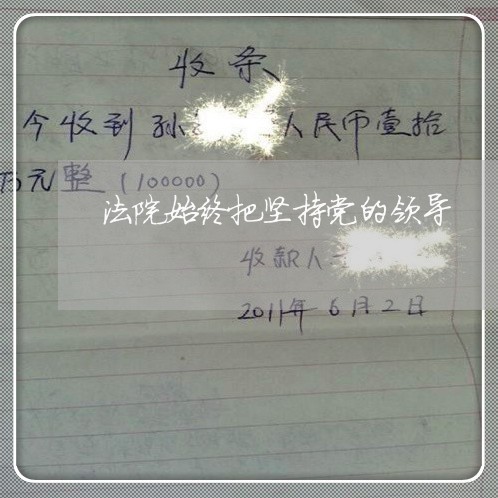 收条
今收到孙 人民币壹拾
万元整（100000）
法院始终把坚持党的领导
收款人
2011年6月2日